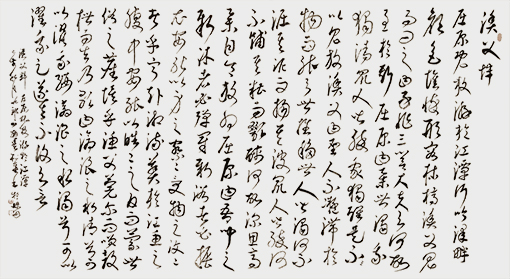 漁父辭
屈原既放游於江潭行吟澤畔
顏色憔悴形容枯槁漁父見
而問之曰子非三閭大夫與何故
至於斯屈原曰舉世皆濁我
獨清眾人皆醉我獨醒是
以見放漁父曰聖人不凝滯於
物而能與世推移世人皆濁何不
淈其泥而揚其波眾人皆醉何
不餔其糟而歠其醨何故深思高
舉自令放為屈原曰吾聞之
新沐者必彈冠新浴者必振
衣安能以身之察察受物之汶汶
者乎寧赴湘流葬於江魚之
腹中安能以皓皓之白而蒙世
俗之塵埃乎漁父莞爾而笑鼓
枻而去乃歌曰滄浪之水清兮可
以濯吾纓滄浪之水濁兮可以
濯吾足遂去不復與言
漁父辭